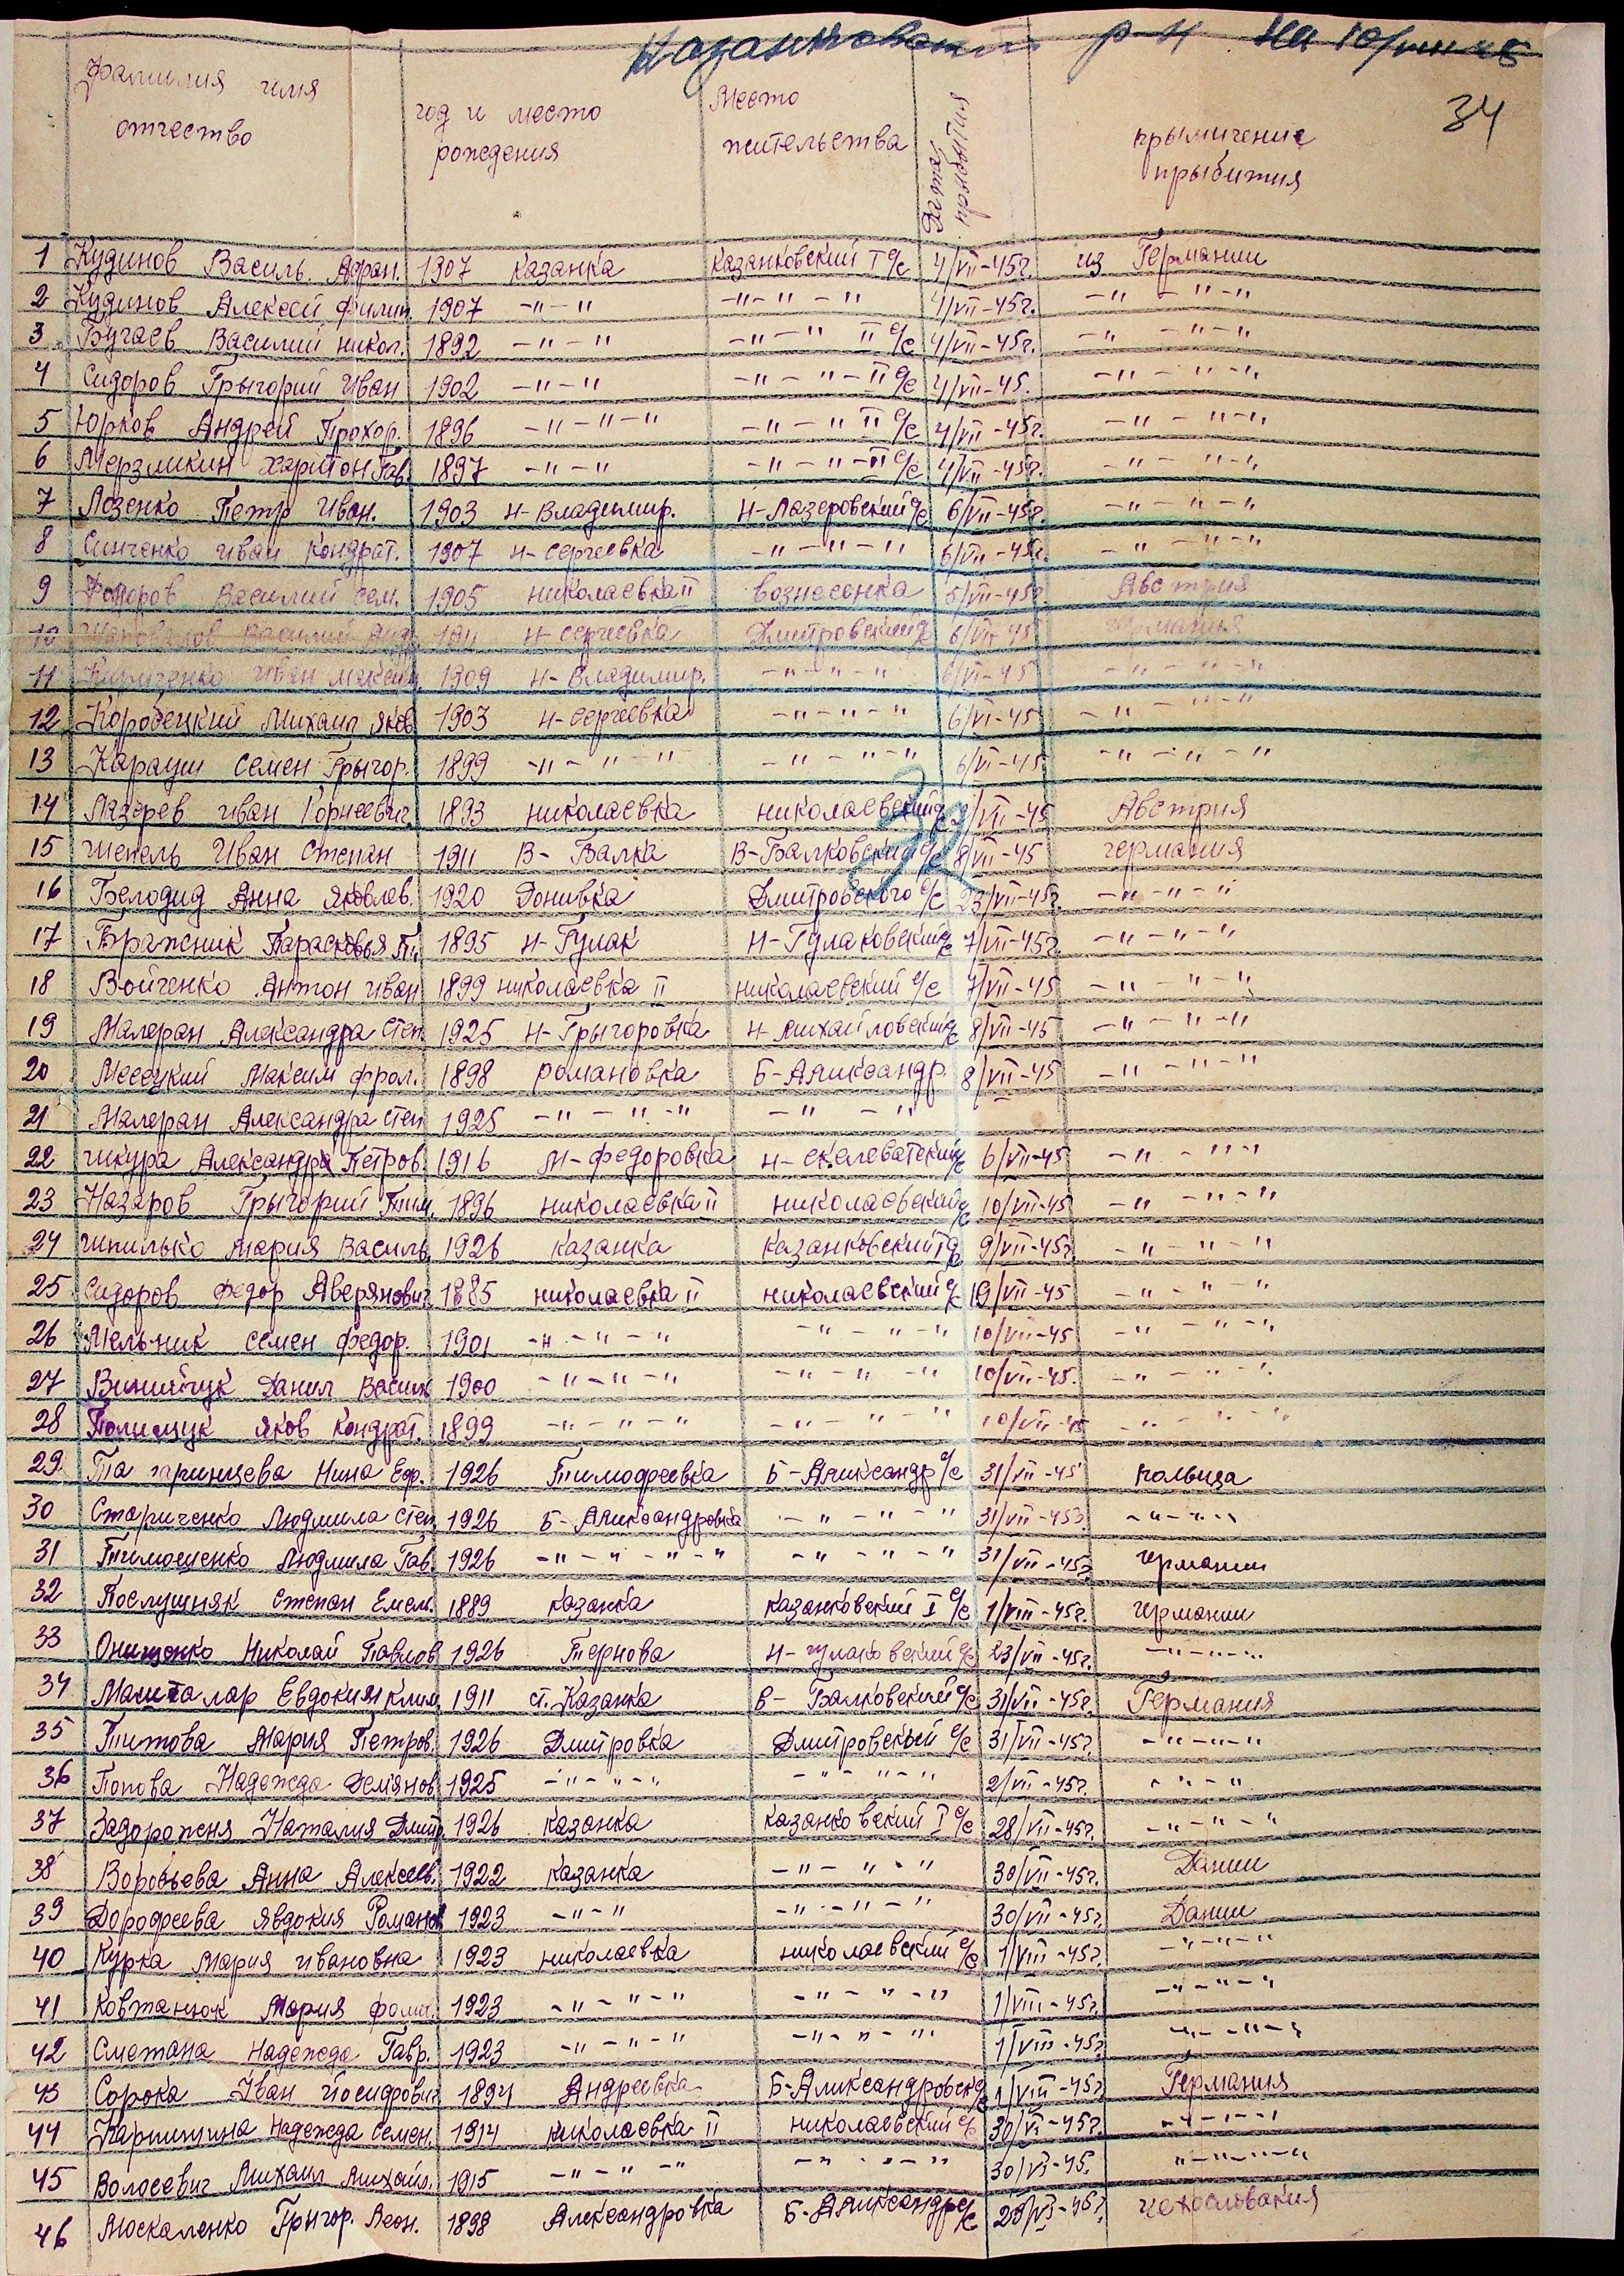 Казанковский р-н на 10/
34
Фамилия имя отчество | год и место рождения | Место жительства | Дата прибытия | прымичение прыбития
1 Кудинов Василь. Афан. 1907 Казанка Казанковский I с/с 4/VII-45г. из Германии
2 Кудинов Алексей Филип. 1907 -"-" -"-"-" 4/VII-45г. -"-"-"
3 Бугаев Василий Никол. 1892 -"-" -"-" II с/с 4/VII-45г. -"-"-"
4 Сидоров Грыгорий Иван 1902 -"-" -"-"-II с/с 4/VII-45. -"-"-"
5 Юрков Андрей Прохор. 1896 -"-"-" -"-" II с/с 4/VII-45г. -"-"-"
6 Мерзликин Харитон Гав. 1897 -"-" -"-"-II с/с 4/VII-45г. -"-"-"
7 Лозенко Петр Иван. 1903 Н-Владимир. Н-Лазеровский с/с 6/VII-45г. -"-"-"
8 Синченко Иван Кондрат. 1907 Н-Сергеевка -"-"-" 6/VII-45г. -"-"-"
9 Василий Сем. 1905 Николаевка II Вознесенка 5/VII-45г. Австрия
10 Василий 1911 Н-Сергеевка Дмитровский с/с 6/VI-45 Германия
11 Кириченко Иван Максим. 1909 Н-Владимир. -"-"-" 6/VI-45 -"-"-"
12 Городецкий Михаил Яков 1903 Н-Сергеевка -"-"-" 6/VI-45 -"-"-"
13 Карауш Семен Грыгор. 1899 -"-"-" -"-"-" 6/VI-45. -"-"-"
14 Лазарев Иван Корнеевич 1893 Николаевка Николаевский с/с /VII-45 Австрия
15 Шепель Иван Степан 1911 В-Балка В-Балковский с/с 8/VII-45 Германия
16 Белодид Анна Яковлев. 1920 Донивка Дмитровского с/с 23/VII-45г. -"-"-"
17 Бражник Парасковья П. 1895 Н-Гулак Н-Гулаковский с/с 7/VII-45г. -"-"-"
18 Войченко Антон Иван 1899 Николаевка II Николаевский с/с 7/VII-45 -"-"-"
19 Малеран Александра Степ. 1925 Н-Грыгоровка Н-Михайловский с/с 8/VII-45 -"-"-"
20 Месецкий Максим Фрол. 1898 Романовка Б-Аликсандр. 8/VII-45 -"-"-"
21 Малеран Александра Степ 1925 -"-"-" -"-"
22 Шкура Александра Петров. 1916 М-Федоровка Н-Скелеватский с/с 6/VII-45 -"-"-"
23 Назаров Грыгорий Тим. 1896 Николаевка II Николаевский с/с 10/VII-45 -"-"-"
24 Шпилько Мария Василь 1926 Казанка Казанковский I с/с 9/VII-45г. -"-"-"
25 Сидоров Федор Аверянович 1885 Николаевка II Николаевский с/с 10/VII-45 -"-"-"
26 Мельник Семен Федор. 1901 -"-"-" -"-"-" 10/VII-45 -"-"-"
27 Винийчук Данил Васил 1900 -"-"-" -"-"-" 10/VII-45. -"-"-"
28 Полищук Яков Кондрат. 1899 -"-"-" -"-"-" 10/VII-45 -"-"-"
29 Татаринцева Нина Еф. 1926 Тимофеевка Б-Аликсандр с/с 31/VII-45 Польща
30 Стариченко Людмила Степ 1926 Б-Аликсандровка -"-"-" 31/VII-45г. -"-"-
31 Тимошенко Людмила Гав. 1926 -"-"-"-" -"-"-" 31/VII-45г. Германии
32 Послушняк Степан Емел. 1889 Казанка Казанковский I с/с 1/VIII-45г. Германии
33 Онищенко Николай Павлов 1926 Тернова Н-Гулаковский с/с 23/VII-45г. -"-"-"
34 Машталар Евдокия Клим. 1911 ст. Казанка В-Балковский с/с 31/VII-45г. Германия
35 Титова Мария Петров. 1926 Дмитровка Дмитровский с/с 31/VII-45г. -"-"-"
36 Попова Надежда Демянов 1925 -"-"-" -"-"-" 2/VII-45г. -"-"
37 Задорожня Наталия Дмитр 1926 Казанка Казанковский I с/с 28/VII-45г. -"-"-"
38 Воробьева Анна Алексеев. 1922 Казанка -"-"-" 30/VII-45г. Дании
39 Дорофеева Явдокия Романов 1923 -"-" -"-"-" 30/VII-45г. Дании
40 Курка Мария Ивановна 1923 Николаевка Николаевский с/с 1/VIII-45г. -"-"-"
41 Ковтанюк Мария Фоми. 1923 -"-"-" -"-"-" 1/VIII-45г. -"-"-"
42 Сметана Надежда Гавр. 1923 -"-"-" -"-"-" 1/VIII-45г. -"-"-"
43 Сорока Іван Иосифович 1894 Андреевка Б-Аликсандровск с/с 1/VIII-45г. Германия
44 Карпишина Надежда Семен. 1914 Николаевка II Николаевский с/с 30/VI-45г. -"-"-"
45 Волосевич Михаил Михайл. 1915 -"-"-" -"-"-" 30/VI-45. "-"-"-"
46 Москаленко Грыгор. Леон. 1898 Александровка Б-Аликсандр с/с 29/VI-45г. Чехословакия